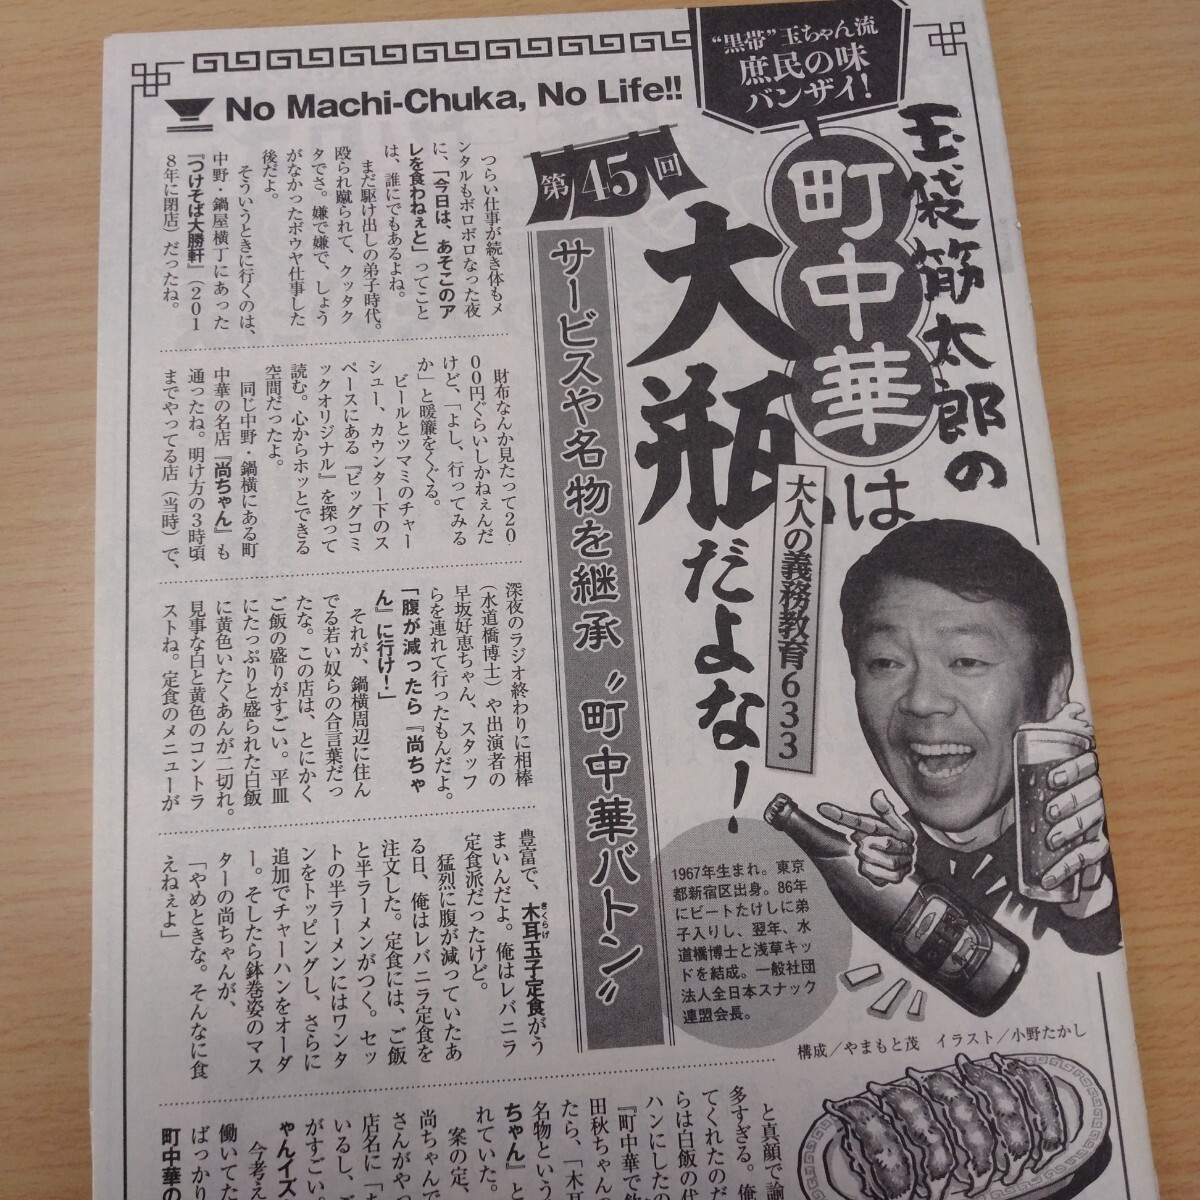 No Machi-Chuka, No Life!!
“黒帯”玉ちゃん流
庶民の味
バンザイ!
玉袋筋太郎の
町中華は
大人の義務教育633
大瓶だよな!
第45回
サービスや名物を継承〝町中華バトン〟
1967年生まれ。東京
都新宿区出身。86年
にビートたけしに弟
子入りし、翌年、水
道橋博士と浅草キッ
ドを結成。一般社団
法人全日本スナック
連盟会長。
構成/やまもと茂 イラスト/小野たかし
つらい仕事が続き体もメ
ンタルもボロボロなった夜
に、「今日は、あそこのア
レを食わねぇと」ってこと
は、誰にでもあるよね。
まだ駆け出しの弟子時代。
殴られ蹴られて、クッタク
タでさ。嫌で嫌で、しょう
がなかったボウヤ仕事した
後だよ。
そういうときに行くのは、
中野・鍋屋横丁にあった
『つけそば大勝軒』(201
8年に閉店)だったね。
財布なんか見たって20
00円ぐらいしかねぇんだ
けど、「よし、行ってみる
か」と暖簾をくぐる。
ビールとツマミのチャー
シュー、カウンター下のス
ペースにある『ビッグコミ
ックオリジナル』を探って
読む。心からホッとできる
空間だったよ。
同じ中野・鍋横にある町
中華の名店『尚ちゃん』も
通ったね。明け方の3時頃
までやってる店(当時)で、
深夜のラジオ終わりに相棒
(水道橋博士)や出演者の
早坂好恵ちゃん、スタッフ
らを連れて行ったもんだよ。
「腹が減ったら『尚ちゃ
ん』に行け!」
それが、鍋横周辺に住ん
でる若い奴らの合言葉だっ
たな。この店は、とにかく
ご飯の盛りがすごい。平皿
にたっぷりと盛られた白飯
に黄色いたくあんが二切れ。
見事な白と黄色のコントラ
ストね。定食のメニューが
豊富で、木耳玉子定食がう
きくらげ
まいんだよ。俺はレバニラ
定食派だったけど。
猛烈に腹が減っていたあ
る日、俺はレバニラ定食を
注文した。定食には、ご飯
と半ラーメンがつく。セッ
トの半ラーメンにはワンタ
ンをトッピングし、さらに
追加でチャーハンをオーダ
ー。そしたら鉢巻姿のマス
ターの尚ちゃんが、
「やめときな。そんなに食
えねぇよ」
と真顔で諭
多すぎる。俺
てくれたのだ
らは白飯の代
ハンにしたの
『町中華で飲
田秋ちゃんの
たら、「木耳
名物という
ちゃん』と
れていた。
案の定、
尚ちゃんで
さんがやっ
店名に「
いるし、
がすごい。
ゃんイズ
今考え
働いてた
ばっかり
町中華の